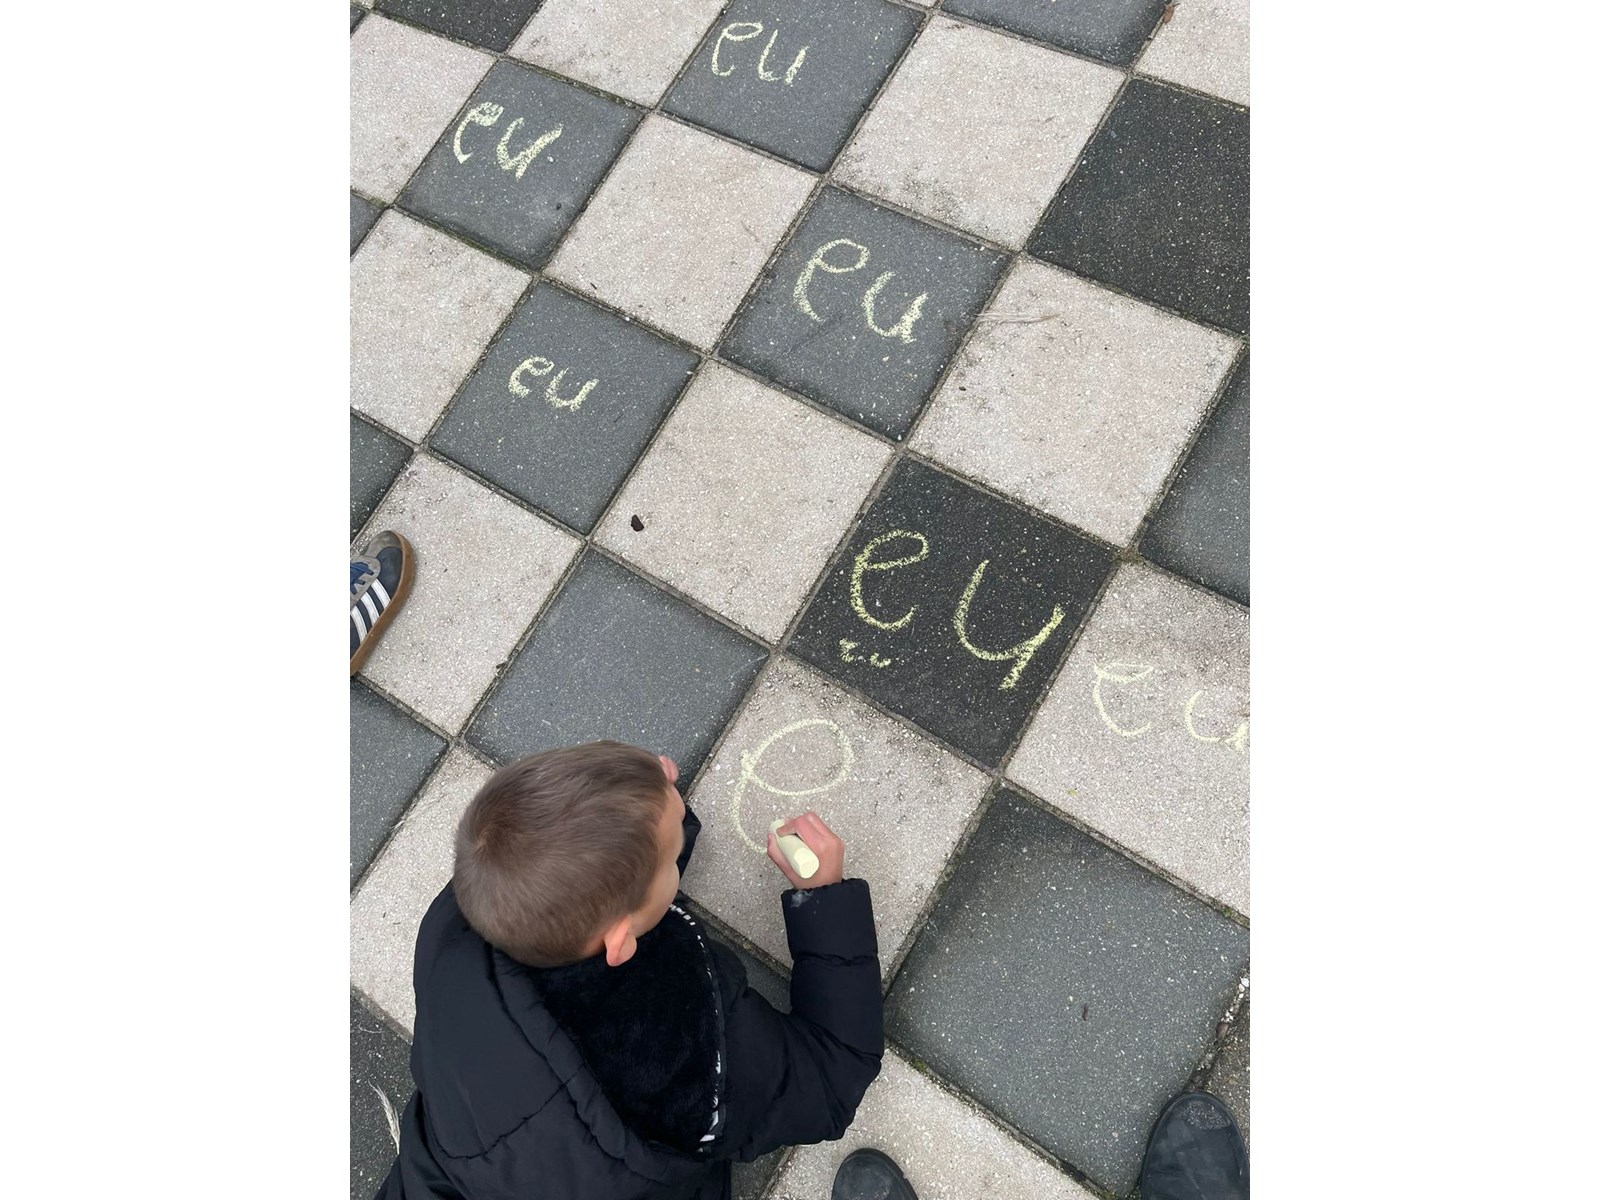 eu
eu
eu
eu
eu
eu
eu
e